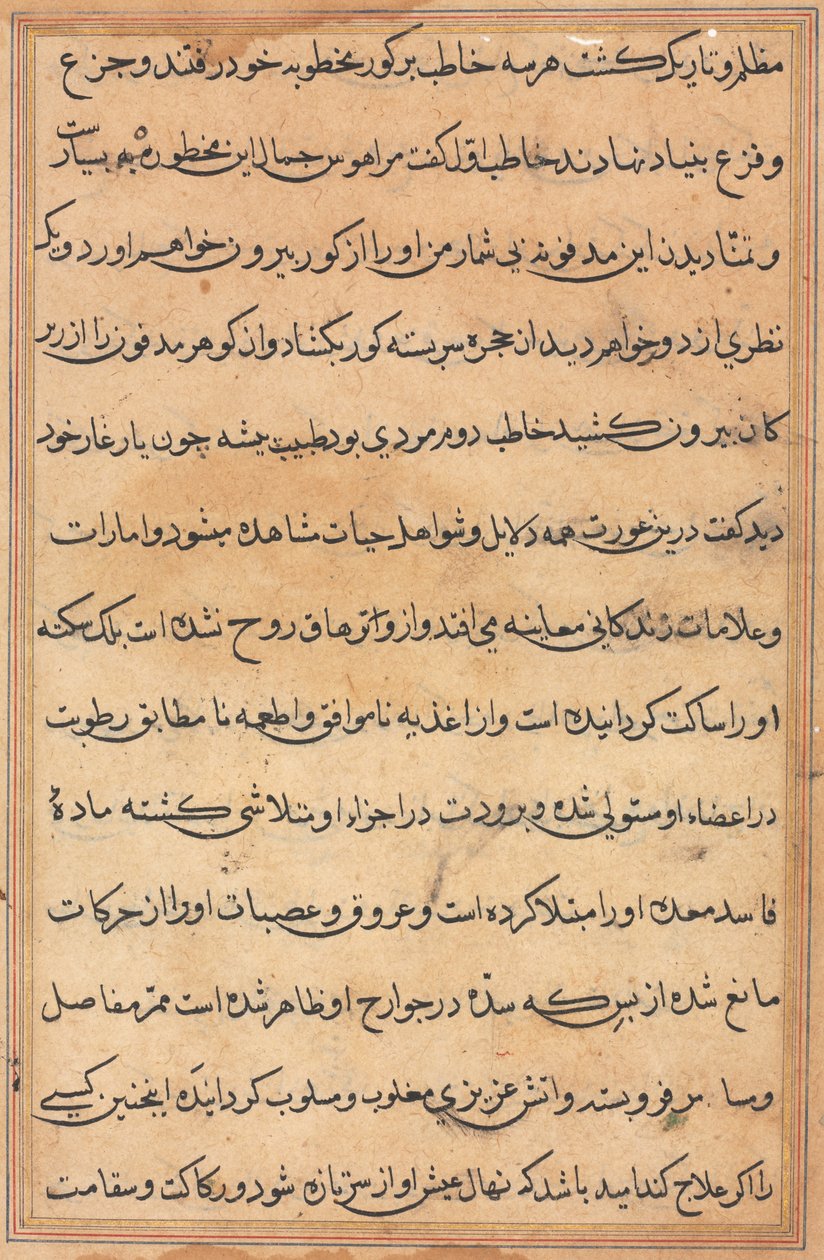 مظلم و تاریک کشت هر سه خاطب بر کور مخطوبه خود رفتند و جزع
و فزع بنیاد نهادند خاطب اوّل کفت مرا هوس جمال این مخطوبه بسیارست
و تمنّا دیدن این مدفونه بی شمار من او را از کور بیرون خواهم اورد و یک
نظری از دو خواهم دید ان حجره سربسته کور بکشاد و ان کوهر مدفون را از زیر
کان بیرون کشید خاطب دوم مردی بود طبیب پیشه چون یار غار خود
دید کفت درین عورت همه دلایل و شواهد حیات مشاهده میشود و امارات
و علامات زندکانی معاینه می افتد و از و اثر هاق روح نشده است بلک سکته
او را ساکت کردانیده است و از اغذیه ناموافق و اطعمه نا مطابق رطوبت
در اعضاء او مستولی شده و برودت در اجزاء او متلاشی کشته مادهٔ
فاسد معده او را مبتلا کرده است و عروق و عصبات او را از حرکات
مانع شده از بسِ که سدّه در جوارح او ظاهر شده است ممرّ مفاصل
و مسا مر فرو بسته و اتش عزیزی مغلوب و مسلوب کردانیَده اینچنین کسی
را اکر علاج کند امید باشد که نهال عیش او از سر تازه شود و رکاکت و سقامت